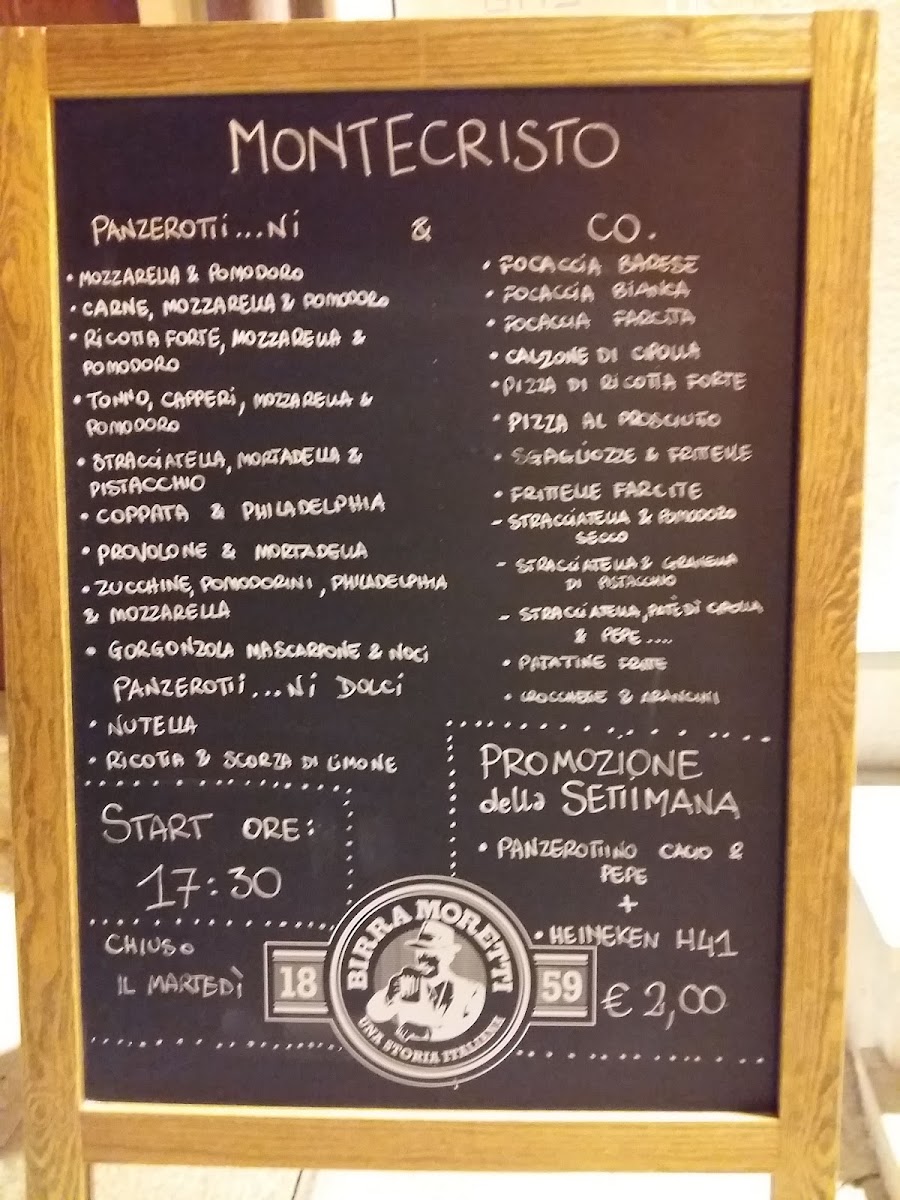 MONTECRISTO
PANZEROTTI...NI & CO.
• MOZZARELLA & POMODORO
• CARNE, MOZZARELLA & POMODORO
• RICOTTA FORTE, MOZZARELLA &
POMODORO
• TONNO, CAPPERI, MOZZARELLA &
POMODORO
• STRACCIATELLA, MORTADELLA &
PISTACCHIO
• COPPATA & PHILADELPHIA
• PROVOLONE & MORTADELLA
• ZUCCHINE, POMODORINI, PHILADELPHIA
& MOZZARELLA
• GORGONZOLA MASCARPONE & NOCI
PANZEROTTI...NI DOLCI
• NUTELLA
• RICOTTA & SCORZA DI LIMONE
START ORE:
17:30
CHIUSO
IL MARTEDÌ
• FOCACCIA BARESE
• FOCACCIA BIANCA
• FOCACCIA FARCITA
• CALZONE DI CIPOLLA
• PIZZA DI RICOTTA FORTE
• PIZZA AL PROSCIUTTO
• SGAGLIOZZE & FRITTELLE
• FRITTELLE FARCITE
- STRACCIATELLA & POMODORO
SECCO
- STRACCIATELLA & GRANELLA
DI PISTACCHIO
- STRACCIATELLA, PATÈ DI CIPOLLA
& PEPE....
• PATATINE FRITTE
• CROCCHERE & ARANCINI
PROMOZIONE
della SETTIMANA
• PANZEROTTINO CACIO &
PEPE
+
• HEINEKEN H41
€ 2,00
BIRRA MORETTI
18 59
UNA STORIA ITALIANA